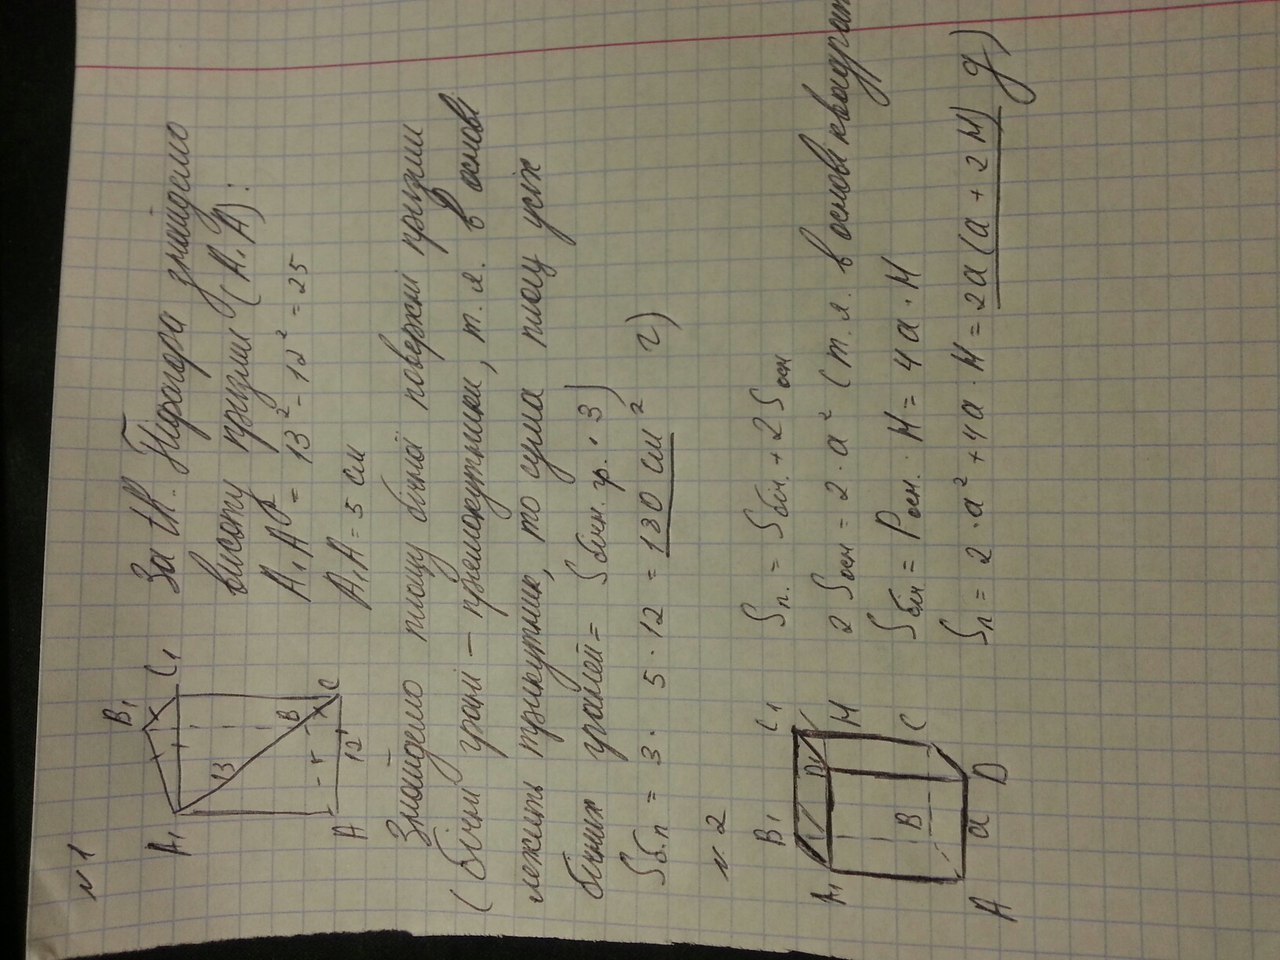 N1
A₁ B₁ C₁
13
A B C
12
За th. Піфагора знайдемо
висоту призми (A₁A):
A₁A² = 13² - 12² = 25
A₁A = 5 см
Знайдемо площу бічної поверхні призми
(бічні грані – прямокутники, т.я. в основі
лежить трикутник, то сума площ усіх
бічних граней = Sбічн. гр. · 3)
Sб.п = 3 · 5 · 12 = 180 см² г)
N2
B₁ C₁
A₁ D₁ H
B C
A a D
Sп. = Sбіч. + 2Sосн
2Sосн = 2 · a² (т.я. в основі квадрат
Sбіч = Pосн. · H = 4a · H
Sп = 2 · a² + 4a · H = 2a(a + 2H) д)